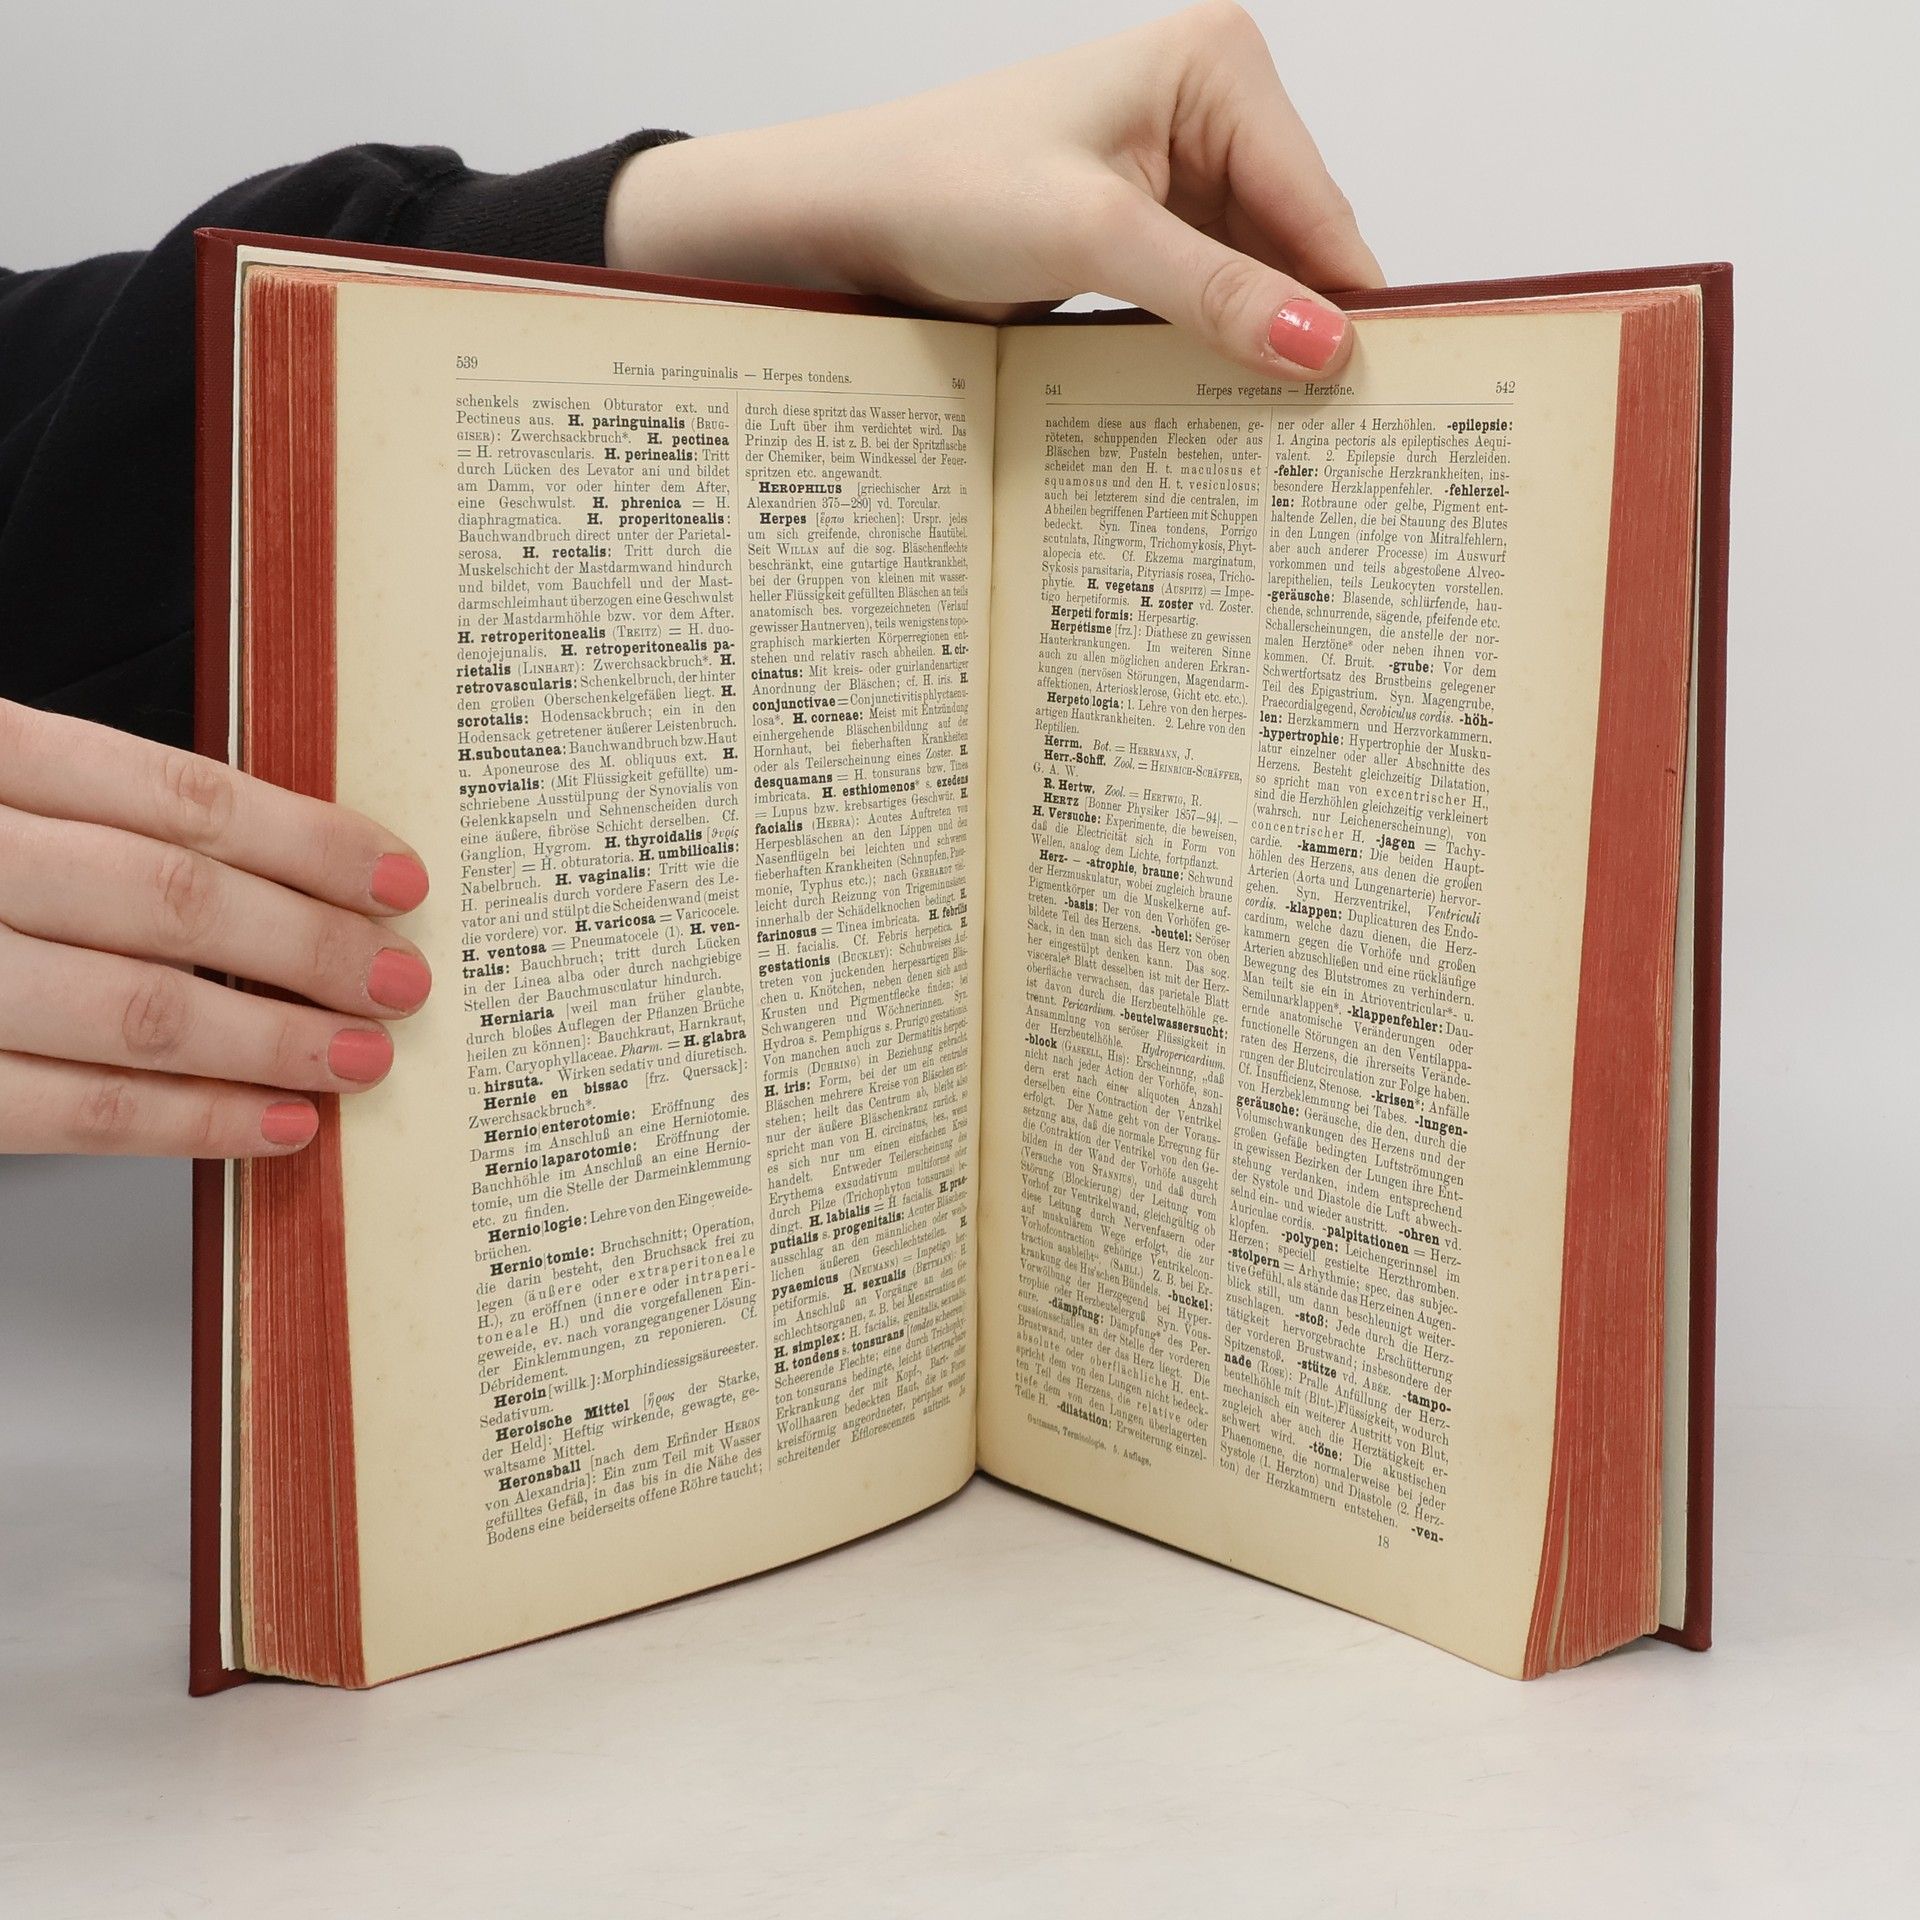 539
Hernia paringuinalis — Herpes tondens.
540
schenkels zwischen Obturator ext. und
Pectineus aus. H. paringuinalis (BRUG-
GISER): Zwerchsackbruch*. H. pectinea
= H. retrovascularis. H. perinealis: Tritt
durch Lücken des Levator ani und bildet
am Damm, vor oder hinter dem After,
eine Geschwulst. H. phrenica = H.
diaphragmatica. H. properitonealis:
Bauchwandbruch direct unter der Parietal-
serosa. H. rectalis: Tritt durch die
Muskelschicht der Mastdarmwand hindurch
und bildet, vom Bauchfell und der Mast-
darmschleimhaut überzogen eine Geschwulst
in der Mastdarmhöhle bzw. vor dem After.
H. retroperitonealis (TREITZ) = H. duo-
denojejunalis. H. retroperitonealis pa-
rietalis (LINHART): Zwerchsackbruch*. H.
retrovascularis: Schenkelbruch, der hinter
den großen Oberschenkelgefäßen liegt. H.
scrotalis: Hodensackbruch; ein in den
Hodensack getretener äußerer Leistenbruch.
H. subcutanea: Bauchwandbruch bzw. Haut
u. Aponeurose des M. obliquus ext. H.
synovialis: (Mit Flüssigkeit gefüllte) um-
schriebene Ausstülpung der Synovialis von
Gelenkkapseln und Sehnenscheiden durch
eine äußere, fibröse Schicht derselben. Cf.
Ganglion, Hygrom. H. thyroidalis [θυρίς
Fenster] = H. obturatoria. H. umbilicalis:
Nabelbruch. H. vaginalis: Tritt wie die
H. perinealis durch vordere Fasern des Le-
vator ani und stülpt die Scheidenwand (meist
die vordere) vor. H. varicosa = Varicocele.
H. ventosa = Pneumatocele (1). H. ven-
tralis: Bauchbruch; tritt durch Lücken
in der Linea alba oder durch nachgiebige
Stellen der Bauchmusculatur hindurch.
Herniaria [weil man früher glaubte,
durch bloßes Auflegen der Pflanzen Brüche
heilen zu können]: Bauchkraut, Harnkraut,
Fam. Caryophyllaceae. Pharm. = H. glabra
u. hirsuta. Wirken sedativ und diuretisch.
Hernie en bissac [frz. Quersack]:
Zwerchsackbruch*.
Hernio|enterotomie: Eröffnung des
Darms im Anschluß an eine Herniotomie.
Hernio|laparotomie: Eröffnung der
Bauchhöhle im Anschluß an eine Hernio-
tomie, um die Stelle der Darmeinklemmung
etc. zu finden.
Hernio|logie: Lehre von den Eingeweide-
brüchen.
Hernio|tomie: Bruchschnitt; Operation,
die darin besteht, den Bruchsack frei zu
legen (äußere oder extraperitoneale
H.), zu eröffnen (innere oder intraperi-
toneale H.) und die vorgefallenen Ein-
geweide, ev. nach vorangegangener Lösung
der Einklemmungen, zu reponieren. Cf.
Débridement.
Heroin [willk.]: Morphindiessigsäureester.
Sedativum.
Heroische Mittel [ἥρως der Starke,
der Held]: Heftig wirkende, gewagte, ge-
waltsame Mittel.
Heronsball [nach dem Erfinder HERON
von Alexandria]: Ein zum Teil mit Wasser
gefülltes Gefäß, in das bis in die Nähe des
Bodens eine beiderseits offene Röhre taucht;
durch diese spritzt das Wasser hervor, wenn
die Luft über ihm verdichtet wird. Das
Prinzip des H. ist z. B. bei der Spritzflasche
der Chemiker, beim Windkessel der Feuer-
spritzen etc. angewandt.
HEROPHILUS [griechischer Arzt in
Alexandrien 375—280] vd. Torcular.
Herpes [ἕρπω kriechen]: Urspr. jedes
um sich greifende, chronische Hautübel.
Seit WILLAN auf die sog. Bläschenflechte
beschränkt, eine gutartige Hautkrankheit,
bei der Gruppen von kleinen mit wasser-
heller Flüssigkeit gefüllten Bläschen an teils
anatomisch bes. vorgezeichneten (Verlauf
gewisser Hautnerven), teils wenigstens topo-
graphisch markierten Körperregionen ent-
stehen und relativ rasch abheilen. H. cir-
cinatus: Mit kreis- oder guirlandenartiger
Anordnung der Bläschen; cf. H. iris. H.
conjunctivae = Conjunctivitis phlyctaenu-
losa*. H. corneae: Meist mit Entzündung
einhergehende Bläschenbildung auf der
Hornhaut, bei fieberhaften Krankheiten
oder als Teilerscheinung eines Zoster. H.
desquamans = H. tonsurans bzw. Tinea
imbricata. H. esthiomenos* s. exedens
= Lupus bzw. krebsartiges Geschwür. H.
facialis (HEBRA): Acutes Auftreten von
Herpesbläschen an den Lippen und den
Nasenflügeln bei leichten und schweren
fieberhaften Krankheiten (Schnupfen, Pneu-
monie, Typhus etc.); nach GERHARDT viel-
leicht durch Reizung von Trigeminusästen
innerhalb der Schädelknochen bedingt. H.
farinosus = Tinea imbricata. H. febrilis
= H. facialis. Cf. Febris herpetica. H.
gestationis (BUCKLEY): Schubweises Auf-
treten von juckenden herpesartigen Bläs-
chen u. Knötchen, neben denen sich auch
Krusten und Pigmentflecke finden; bei
Schwangeren und Wöchnerinnen. Syn.
Hydroa s. Pemphigus s. Prurigo gestationis.
Von manchen auch zur Dermatitis herpeti-
formis (DUHRING) in Beziehung gebracht.
H. iris: Form, bei der um ein centrales
Bläschen mehrere Kreise von Bläschen ent-
stehen; heilt das Centrum ab, bleibt also
nur der äußere Bläschenkranz zurück, so
spricht man von H. circinatus, bes., wenn
es sich nur um einen einfachen Kreis
handelt. Entweder Teilerscheinung des
Erythema exsudativum multiforme oder
durch Pilze (Trichophyton tonsurans) be-
dingt. H. labialis = H. facialis. H. prae-
putialis s. progenitalis: Acuter Bläschen-
ausschlag an den männlichen oder weib-
lichen äußeren Geschlechtsteilen. H.
pyaemicus (NEUMANN) = Impetigo her-
petiformis. H. sexualis (BETTMANN): H.
im Anschluß an Vorgänge an den Ge-
schlechtsorganen, z. B. bei Menstruation etc.
H. simplex: H. facialis, genitalis, sexualis.
H. tondens s. tonsurans [tondeo scheeren]:
Scheerende Flechte; eine durch Trichophy-
ton tonsurans bedingte, leicht übertragbare
Erkrankung der mit Kopf-, Bart- oder
Wollhaaren bedeckten Haut, die in Form
kreisförmig angeordneter, peripher weiter
schreitender Efflorescenzen auftritt. Je
541
Herpes vegetans — Herztöne.
542
nachdem diese aus flach erhabenen, ge-
röteten, schuppenden Flecken oder aus
Bläschen bzw. Pusteln bestehen, unter-
scheidet man den H. t. maculosus et
squamosus und den H. t. vesiculosus;
auch bei letzterem sind die centralen, im
Abheilen begriffenen Partieen mit Schuppen
bedeckt. Syn. Tinea tondens, Porrigo
scutulata, Ringworm, Trichomykosis, Phyt-
alopecia etc. Cf. Ekzema marginatum,
Sykosis parasitaria, Pityriasis rosea, Tricho-
phytie. H. vegetans (AUSPITZ) = Impe-
tigo herpetiformis. H. zoster vd. Zoster.
Herpeti|formis: Herpesartig.
Herpétisme [frz.]: Diathese zu gewissen
Hauterkrankungen. Im weiteren Sinne
auch zu allen möglichen anderen Erkran-
kungen (nervösen Störungen, Magendarm-
affektionen, Arteriosklerose, Gicht etc. etc.).
Herpeto|logia: 1. Lehre von den herpes-
artigen Hautkrankheiten. 2. Lehre von den
Reptilien.
Herrm. Bot. = HERRMANN, J.
Herr.-Schff. Zool. = HEINRICH-SCHÄFFER,
G. A. W.
R. Hertw. Zool. = HERTWIG, R.
HERTZ [Bonner Physiker 1857—94]. —
H. Versuche: Experimente, die beweisen,
daß die Electricität sich in Form von
Wellen, analog dem Lichte, fortpflanzt.
Herz- – -atrophie, braune: Schwund
der Herzmuskulatur, wobei zugleich braune
Pigmentkörper um die Muskelkerne auf-
treten. -basis: Der von den Vorhöfen ge-
bildete Teil des Herzens. -beutel: Seröser
Sack, in den man sich das Herz von oben
her eingestülpt denken kann. Das sog.
viscerale* Blatt desselben ist mit der Herz-
oberfläche verwachsen, das parietale Blatt
ist davon durch die Herzbeutelhöhle ge-
trennt. Pericardium. -beutelwassersucht:
Ansammlung von seröser Flüssigkeit in
der Herzbeutelhöhle. Hydropericardium.
-block (GASKELL, HIS): Erscheinung, „daß
nicht nach jeder Action der Vorhöfe, son-
dern erst nach einer aliquoten Anzahl
derselben eine Contraction der Ventrikel
erfolgt. Der Name geht von der Voraus-
setzung aus, daß die normale Erregung für
die Contraktion der Ventrikel von den Ge-
bilden in der Wand der Vorhöfe ausgeht
(Versuche von STANNIUS), und daß durch
Störung (Blockierung) der Leitung vom
Vorhof zur Ventrikelwand, gleichgültig ob
diese Leitung durch Nervenfasern oder
auf muskulärem Wege erfolgt, die zur
Vorhofcontraction gehörige Ventrikelcon-
traction ausbleibt“ (SAHLI). Z. B. bei Er-
krankung des His'schen Bündels. -buckel:
Vorwölbung der Herzgegend bei Hyper-
trophie oder Herzbeutelerguß. Syn. Vous-
sure. -dämpfung: Dämpfung* des Per-
cussionsschalles an der Stelle der vorderen
Brustwand, unter der das Herz liegt. Die
absolute oder oberflächliche H. ent-
spricht dem von den Lungen nicht bedeck-
ten Teil des Herzens, die relative oder
tiefe dem von den Lungen überlagerten
Teile H. -dilatation: Erweiterung einzel-
Guttmann, Terminologie. 5. Auflage.
ner oder aller 4 Herzhöhlen. -epilepsie:
1. Angina pectoris als epileptisches Aequi-
valent. 2. Epilepsie durch Herzleiden.
-fehler: Organische Herzkrankheiten, ins-
besondere Herzklappenfehler. -fehlerzel-
len: Rotbraune oder gelbe, Pigment ent-
haltende Zellen, die bei Stauung des Blutes
in den Lungen (infolge von Mitralfehlern,
aber auch anderer Processe) im Auswurf
vorkommen und teils abgestoßene Alveo-
larepithelien, teils Leukocyten vorstellen.
-geräusche: Blasende, schlürfende, hau-
chende, schnurrende, sägende, pfeifende etc.
Schallerscheinungen, die anstelle der nor-
malen Herztöne* oder neben ihnen vor-
kommen. Cf. Bruit. -grube: Vor dem
Schwertfortsatz des Brustbeins gelegener
Teil des Epigastrium. Syn. Magengrube,
Praecordialgegend, Scrobiculus cordis. -höh-
len: Herzkammern und Herzvorkammern.
-hypertrophie: Hypertrophie der Musku-
latur einzelner oder aller Abschnitte des
Herzens. Besteht gleichzeitig Dilatation,
so spricht man von excentrischer H.,
sind die Herzhöhlen gleichzeitig verkleinert
(wahrsch. nur Leichenerscheinung), von
concentrischer H. -jagen = Tachy-
cardie. -kammern: Die beiden Haupt-
höhlen des Herzens, aus denen die großen
Arterien (Aorta und Lungenarterie) hervor-
gehen. Syn. Herzventrikel, Ventriculi
cordis. -klappen: Duplicaturen des Endo-
cardium, welche dazu dienen, die Herz-
kammern gegen die Vorhöfe und großen
Arterien abzuschließen und eine rückläufige
Bewegung des Blutstromes zu verhindern.
Man teilt sie ein in Atrioventricular*- u.
Semilunarklappen*. -klappenfehler: Dau-
ernde anatomische Veränderungen oder
functionelle Störungen an den Ventilappa-
raten des Herzens, die ihrerseits Verände-
rungen der Blutcirculation zur Folge haben.
Cf. Insufficienz, Stenose. -krisen*: Anfälle
von Herzbeklemmung bei Tabes. -lungen-
geräusche: Geräusche, die den, durch die
Volumschwankungen des Herzens und der
großen Gefäße bedingten Luftströmungen
in gewissen Bezirken der Lungen ihre Ent-
stehung verdanken, indem entsprechend
der Systole und Diastole die Luft abwech-
selnd ein- und wieder austritt. -ohren vd.
Auriculae cordis. -palpitationen = Herz-
klopfen. -polypen: Leichengerinnsel im
Herzen; speciell gestielte Herzthromben.
-stolpern = Arhythmie; spec. das subjec-
tive Gefühl, als stände das Herz einen Augen-
blick still, um dann beschleunigt weiter-
zuschlagen. -stoß: Jede durch die Herz-
tätigkeit hervorgebrachte Erschütterung
der vorderen Brustwand; insbesondere der
Spitzenstoß. -stütze vd. ABÉE. -tampo-
nade (ROSE): Pralle Anfüllung der Herz-
beutelhöhle mit (Blut-)Flüssigkeit, wodurch
mechanisch ein weiterer Austritt von Blut,
zugleich aber auch die Herztätigkeit er-
schwert wird. -töne: Die akustischen
Phaenomene, die normalerweise bei jeder
Systole (1. Herzton) und Diastole (2. Herz-
ton) der Herzkammern entstehen. -ven-
18